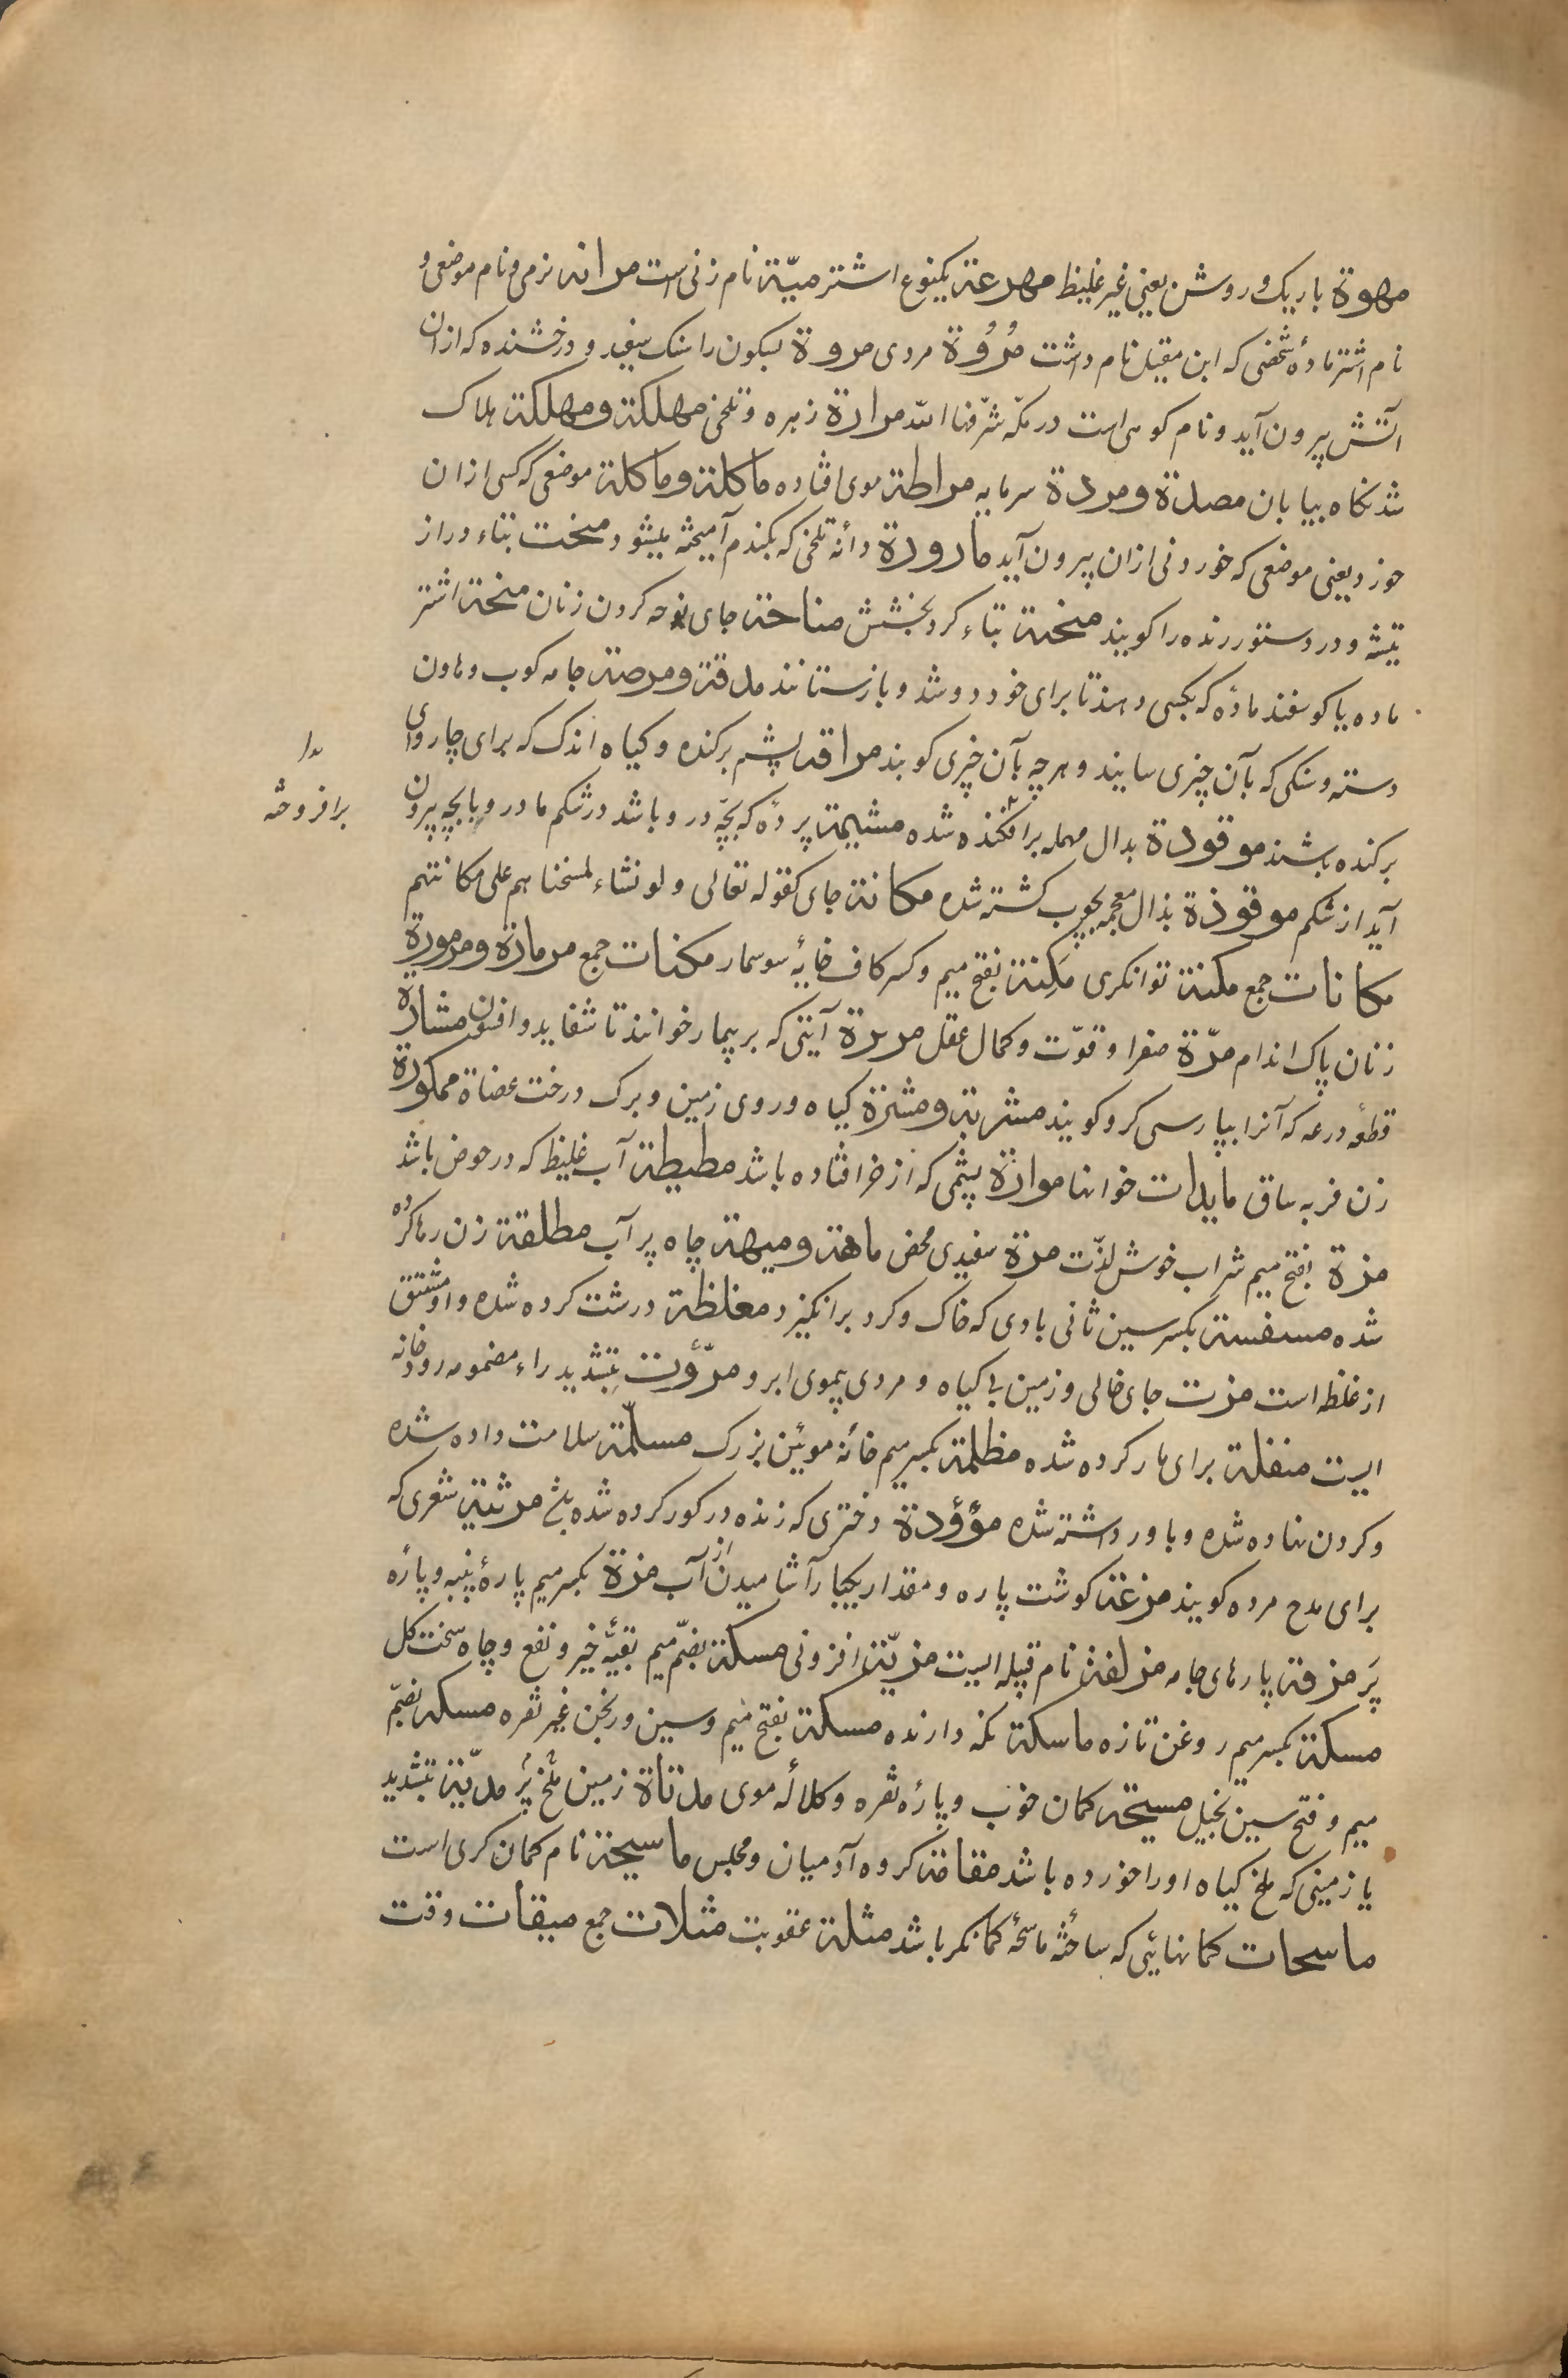 مهوة باریک و روشن یعنی غیر غلیظ مهرعة یکنوع اشتر میّة نام زنی است مرانه نرمی و نام موضعی و
نام اشتر مادهٔ شخصی که ابن مقبل نام داشت مُرُوْة مردی مروة بسکون را سنک سفید و درخشنده که ازان
آتش بیرون آید و نام کوهی است در مکّه شرّفها الله مرارة زهره و تلخی مهلکة ومهلکة هلاک
شدنکاه بیابان مصدة ومردة سرمایه مراطة موی افتاده ماکلة وماکلة موضعی که کسی ازان
خورد یعنی موضعی که خوردنی ازان بیرون آید مارورة دانهٔ تلخی که بکندم آمیخته میشود منحت بتاء دراز
تیشه و در دستور رنده را کویند منحة بتاء کرد بخشش مناحة جای نوحه کردن زنان منحة اشتر
ماده یا کوسفند ماده که بکسی دهند تا برای خود دوشد و بازستانند مدقة ومرضة جامه کوب و هاون
دسته و سنکی که بآن چیزی سایند و هرچه بآن چیزی کوبند مراقة پشم برکنده و کیاه اندک که برای چاروای
برکنده باشند موقودة بدال مهمله برافکنده شده مشیمة پردهٔ که بچّه درو باشد در شکم مادر و با بچه بیرون
بدا
برافروخته
آید از شکم موقوذة بذال معجمه بچوب کشته شده مکانة جای کقوله تعالی ولو نشاء لمسخناهم علی مکانتهم
مکانات جمع مکنة توانکری مَکِنة بفتح میم و کسر کاف خایهٔ سوسمار مکنات جمع مرمارة ومرمورة
زنان پاک اندام مرّة صفرا و قوّت و کمال عقل مریرة آیتی که بر بیمار خوانند تا شفا یابد و افسون مشارة
قطعهٔ درعه که آنرا بپارسی کرد کویند مشربة ومشرة کیاه و روی زمین و برک درخت عضاة ممکورة
زن فربه ساق مایدات خوانها موارة پشمی که از خر افتاده باشد مطیطة آب غلیظ که در حوض باشد
مزة بفتح میم شراب خوش لذّت مرة سفیدی محض ماهة ومیهة چاه پر آب مطلقة زن رها کرده
شده مسفسة بکسر سین ثانی بادی که خاک و کرد برانکیزد مغلظة درشت کرده شده و او مشتق
از غلظه است مرت جای خالی و زمین بی کیاه و مردی بیموی ابرو مرّوت بتشدید راء مضمومه رودخانه
ایست منفلة برای بار کرده شده مظلمة بکسر میم خانهٔ موئین بزرک مسلّمة سلامت داده شده
و کردن نهاده شده و باور داشته شده مؤؤدة دختری که زنده در کور کرده شده باشد مرثیة شعری که
برای مدح مرده کویند مزعة کوشت پاره و مقدار یکبار آشامیدن از آب مزة بکسر میم پارهٔ پنبه و پارهٔ
پَر مزقة پارهای جامه مزلفة نام قبیله ایست مزیّة افزونی مسکة بضمّ میم بقیّهٔ خیر و نفع و چاه سخت کل
مسکة بکسر میم روغن تازه ماسکة نکه دارنده مسکة بفتح میم و سین ورنجن غیر نقره مسکة بضمّ
میم و فتح سین بخیل مسیحة کمان خوب و پارهٔ نقره و کلالهٔ موی مدتاة زمین ملخ پر مدبیّة بتشدید
یا زمینی که ملخ کیاه او را خورده باشد مقامة کروه آدمیان و مجلس ماسیحة نام کمان کری است
ماسحات کمانهائی که ساختهٔ ماسحهٔ کمانکر باشد مثلة عقوبت مثلات جمع میقات وقت